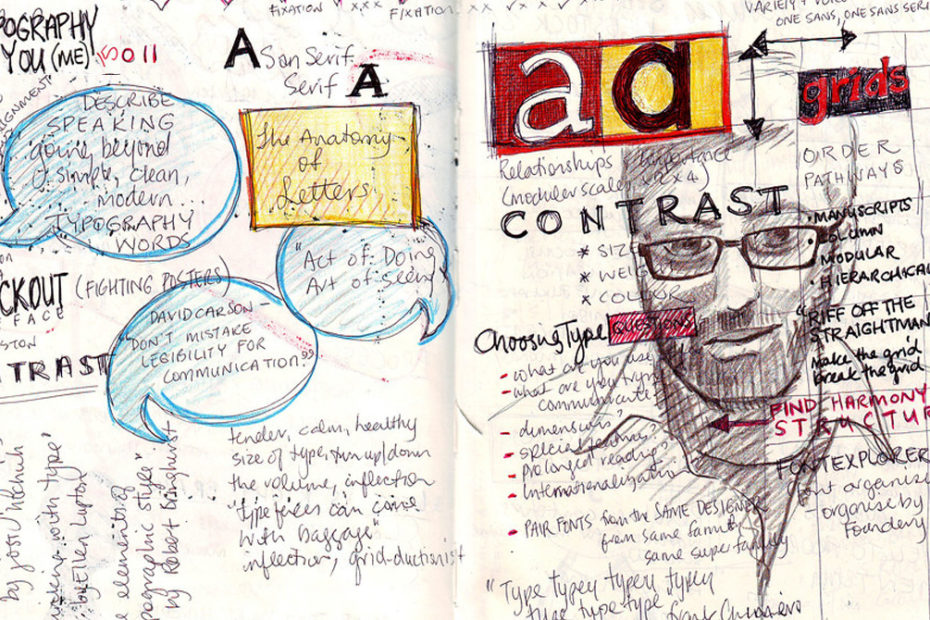 POGRAPHY
YOU (ME)
DESCRIBE
SPEAKING
going beyond
simple, clean,
modern...
TYPOGRAPHY
WORDS
CKOUT (FIGHTING POSTERS)
FACE
STON
TRAST
FIXATION
FIXATION
A San Serif
Serif A
The Anatomy
of
Letters
"Act of: Doing
Art of: seeing"
DAVID CARSON
"DON'T MISTAKE
LEGIBILITY FOR
COMMUNICATION."
tender, calm, healthy
size of type, turn up/down
the volume, inflection
"type faces can come
with baggage"
inflection, grid-ductionist
by Josh
working with type'
Ellen Lupton
elements of
pographic style"
by Robert Bringhurst
VARIETY +
ONE SANS, ONE SANS SERI
a a
grids
Relationships
(modular scale,
ORDER
PATHWAYS
CONTRAST
* SIZ
* WEIG
x COLOUR
MANUSCRIPTS
COLUMN
MODULAR
HIERARCHICAL
"RIFF OFF THE
STRAIGHTMAN
make the grid
break the grid
Choosing Type QUESTIONS
- what are you use
- what are you trying
communicate?
- dimensions?
- special features?
- prolonged reading?
- Internationalization
- PAIR FONTS from the SAME DESIGNER
from same family
same super family
FIND HARMONY
STRUCTUR
FONTEXPLORER
organise
- organise by
Foundery
"Type typey typey typey
type type type"